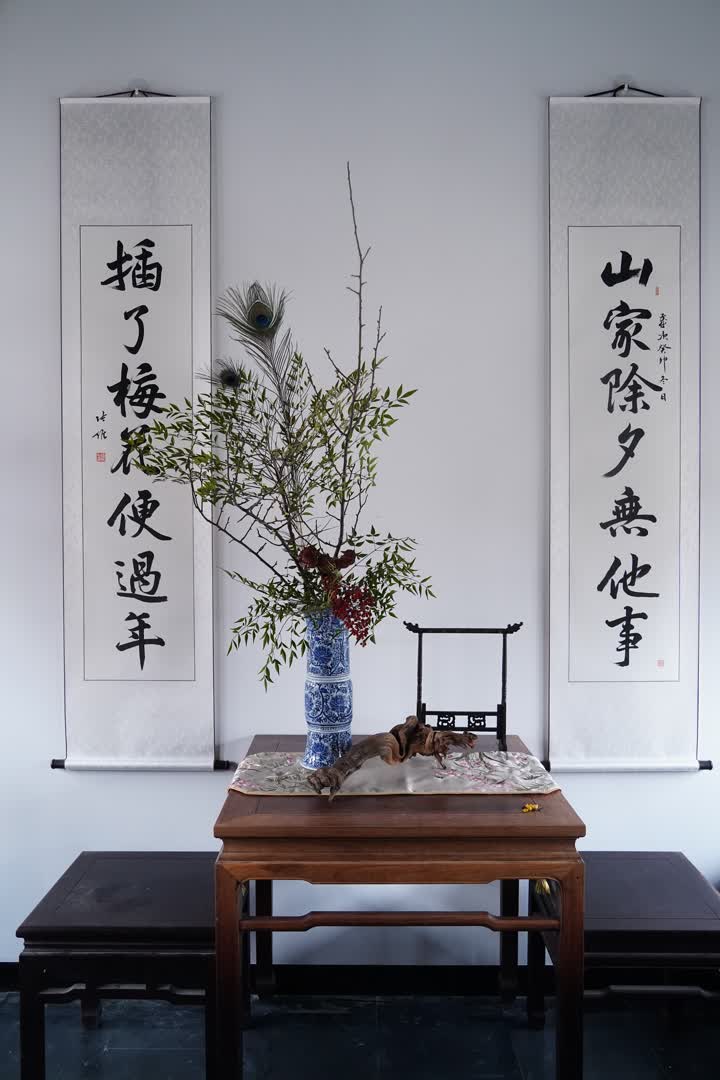 山家除夕無他事
歲次癸卯冬日
插了梅花便過年